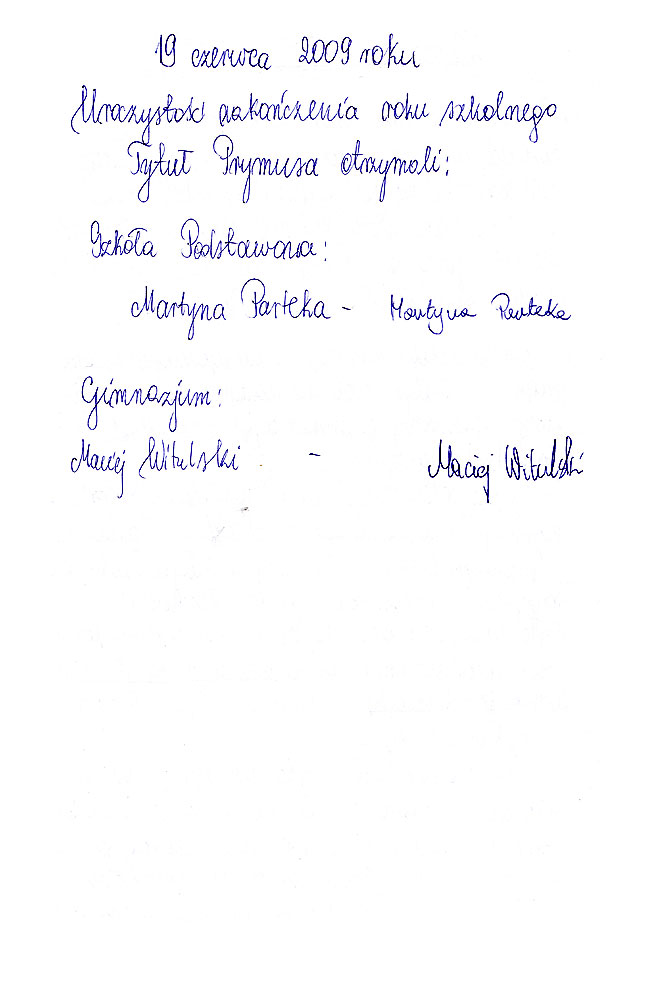 19 czerwca 2009 roku
Uroczystość zakończenia roku szkolnego
Tytuł Prymusa otrzymali:
Szkoła Podstawowa:
Martyna Parteka - Martyna Parteka
Gimnazjum:
Maciej Witulski - Maciej Witulski